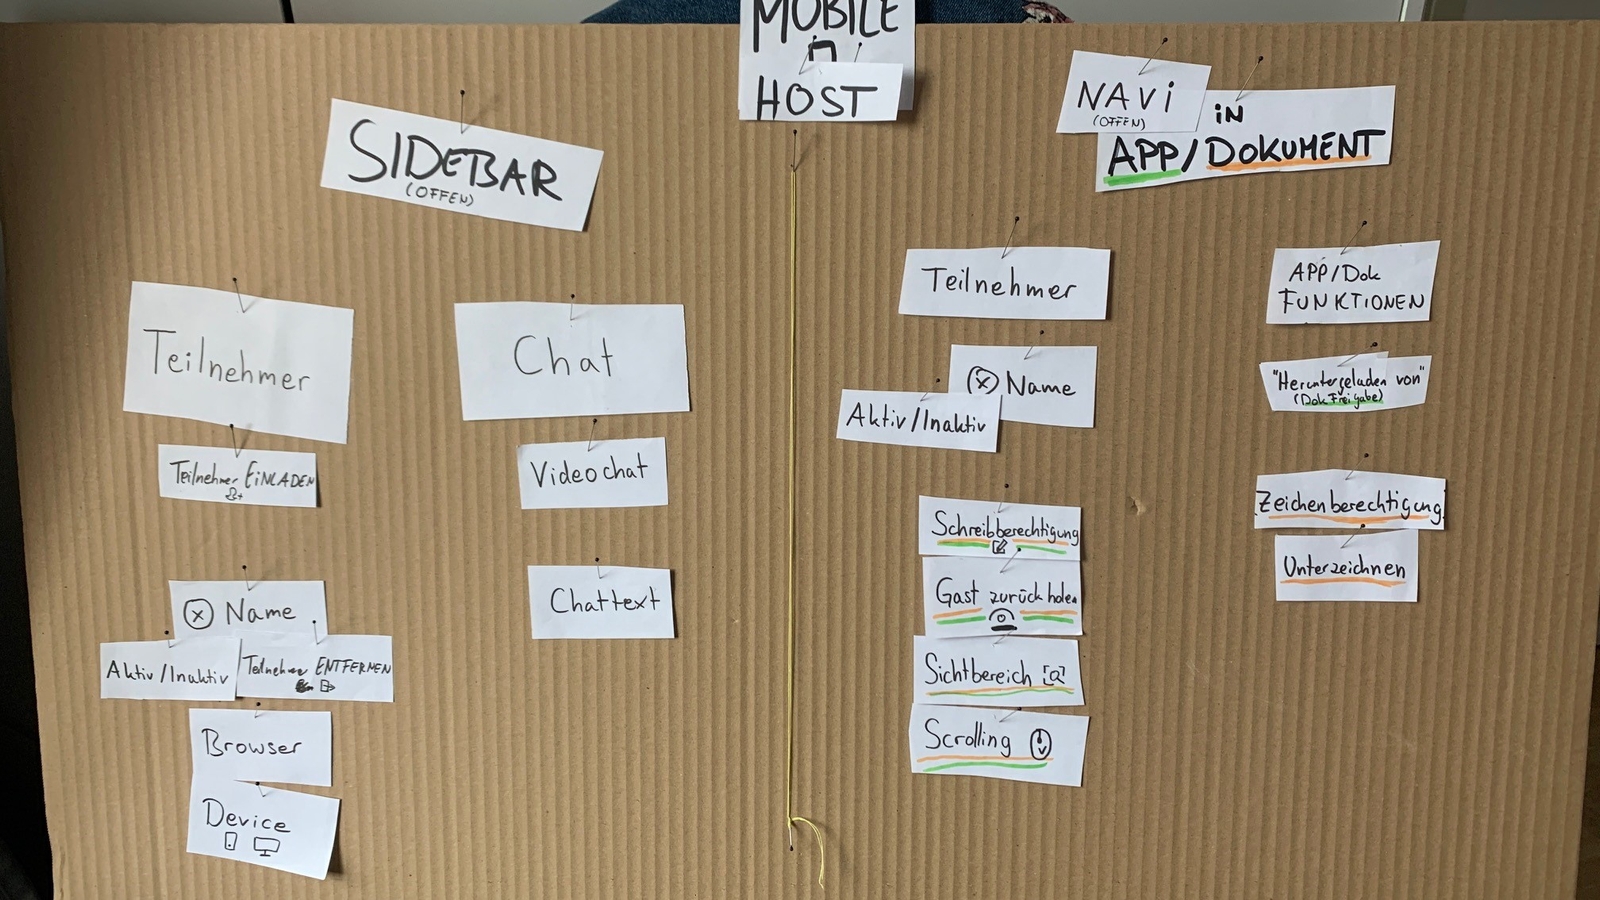 MOBILE
HOST
SIDEBAR
(OFFEN)
Teilnehmer
Teilnehmer EiNLADEN
Name
Aktiv/Inaktiv
Teilnehmer ENTFERNEN
Browser
Device
Chat
Videochat
Chattext
NAVi
(OFFEN)
iN
APP/DOKUMENT
Teilnehmer
Name
Aktiv/Inaktiv
Schreibberechtigung
Gast zurück holen
Sichtbereich
Scrolling
APP/Dok
FUNKTIONEN
"Heruntergeladen von"
(Dok Freigabe)
Zeichenberechtigung
Unterzeichnen